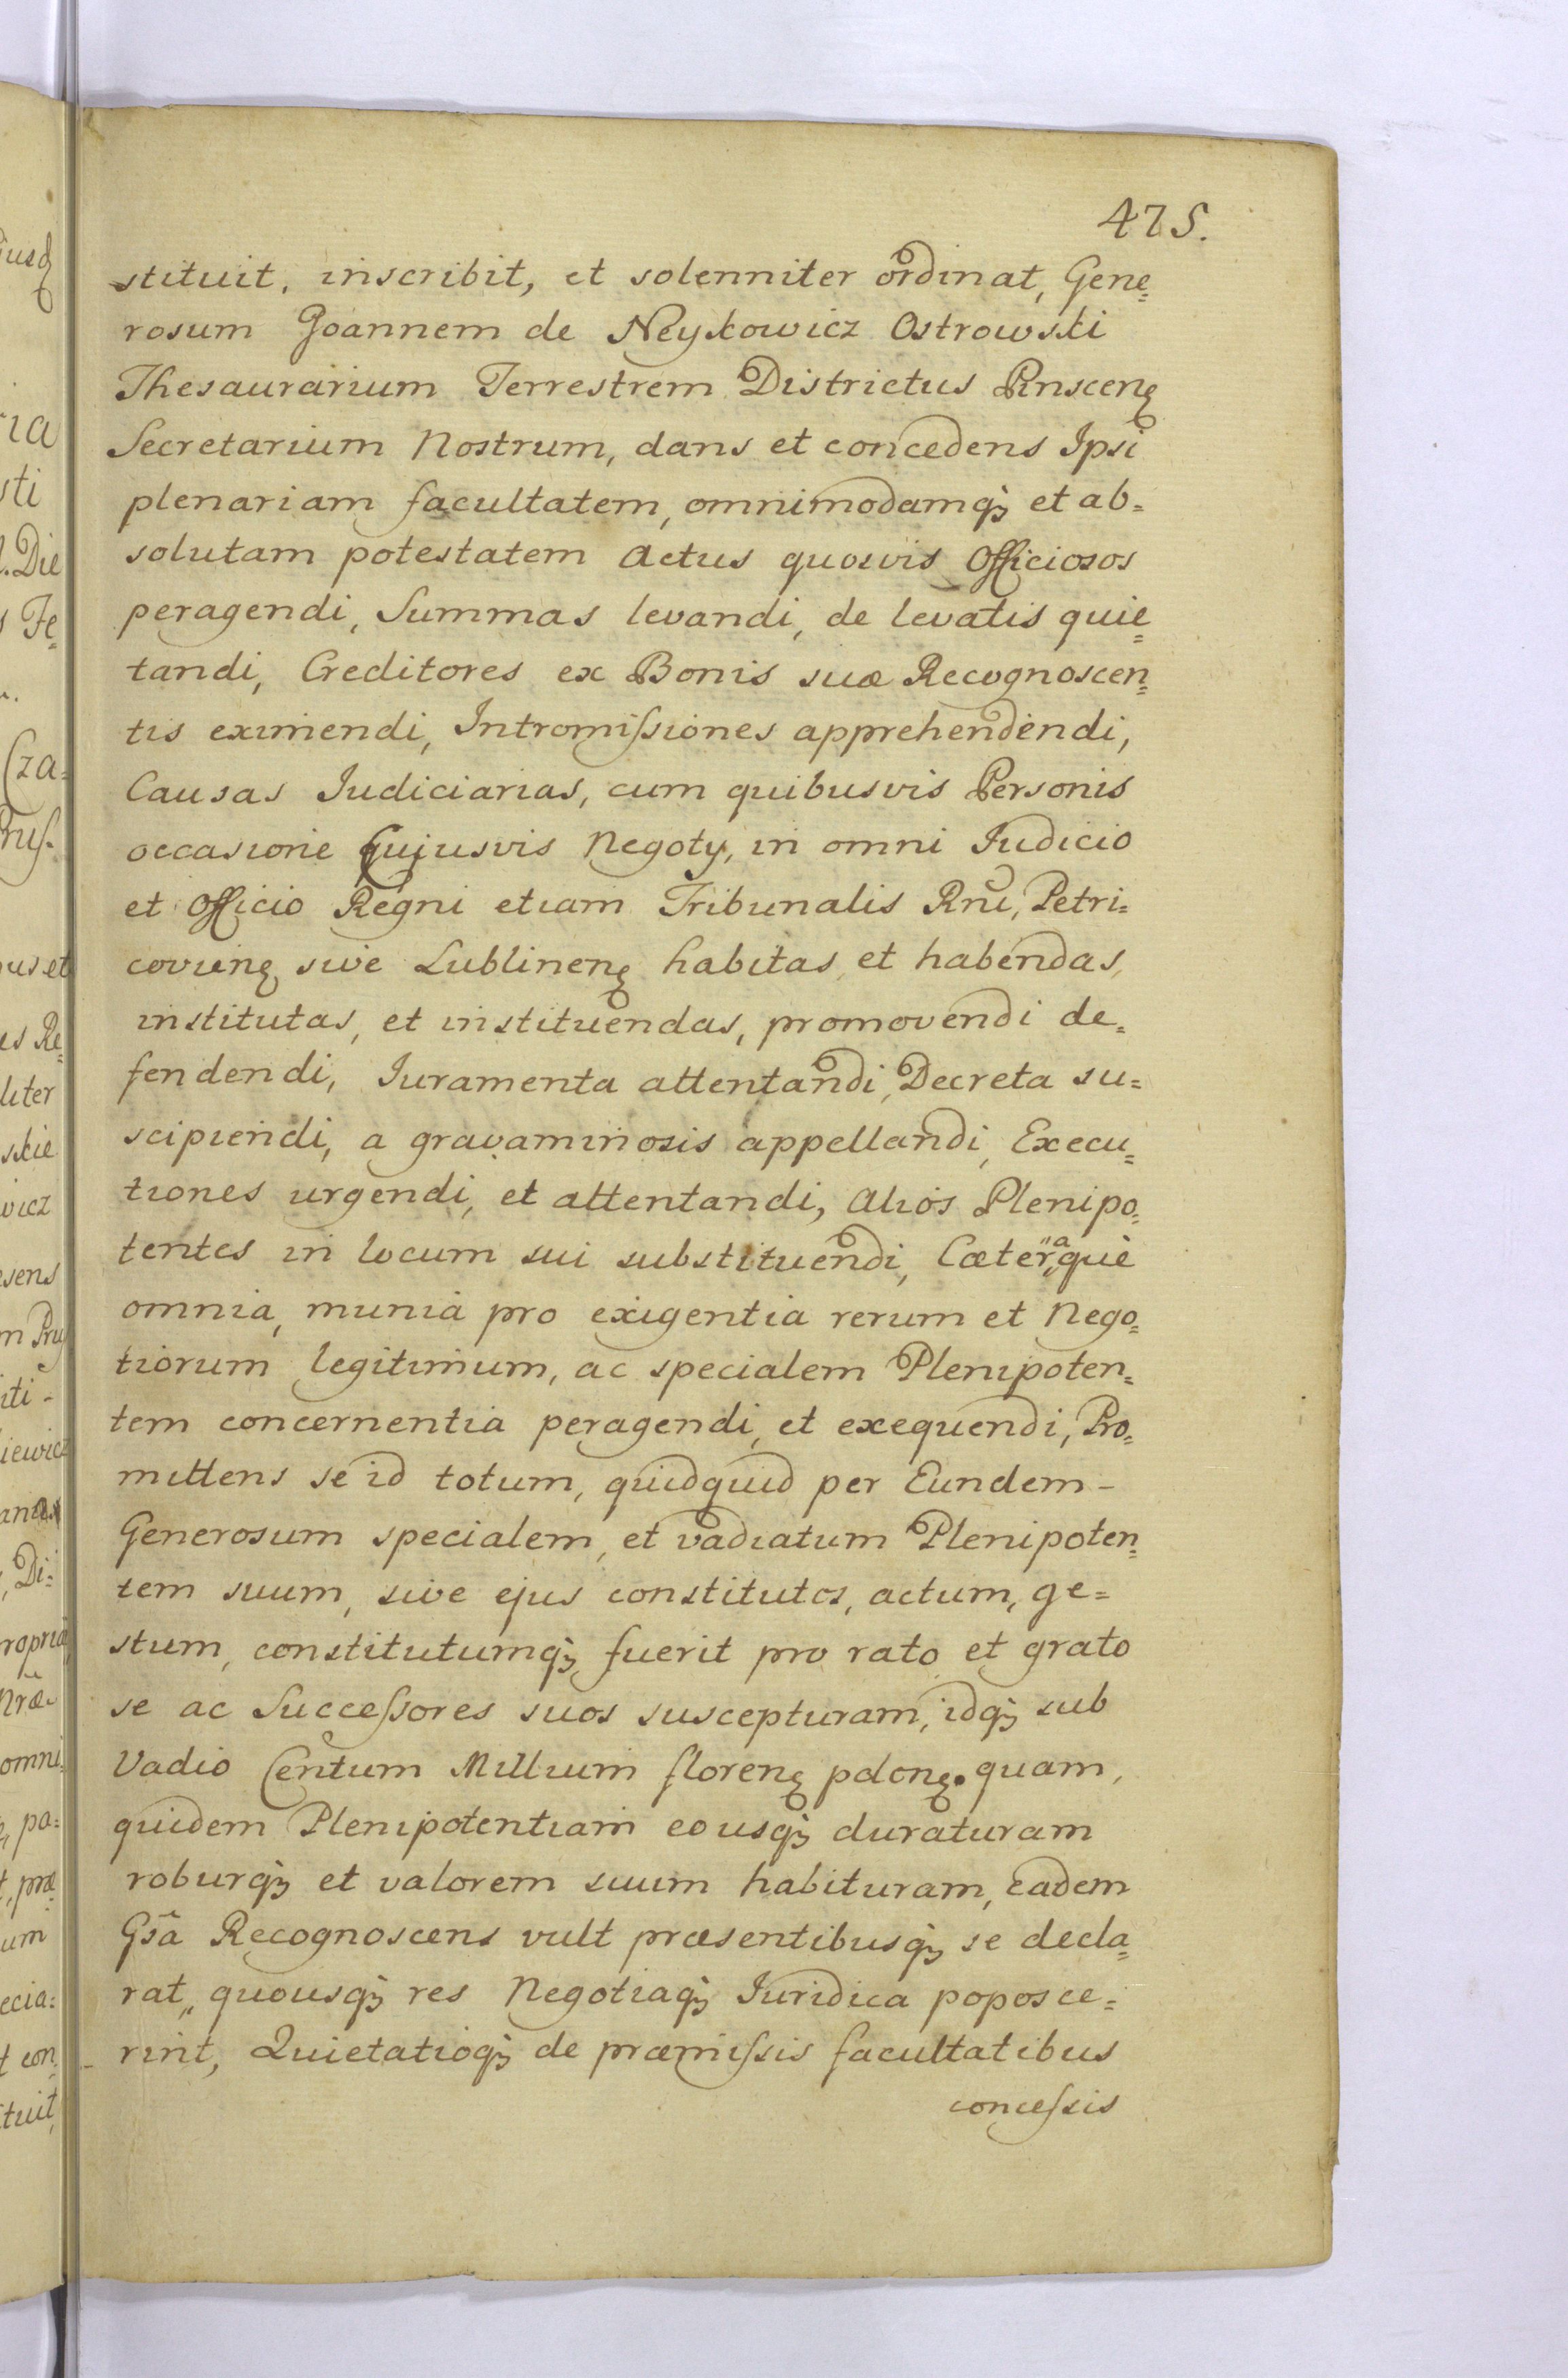 475.
stituit, inscribit, et solenniter ordinat, Gene=
rosum Joannem de Neykowicz Ostrowski
Thesaurarium Terrestrem Districtus Pinscenę
Secretarium Nostrum, dans et concedens Ipsi
plenariam facultatem, omnimodamqꝫ et ab=
solutam potestatem actus quosvis officiosos
peragendi, Summas levandi, de levatis quie=
tandi, Creditores ex Bonis suæ Recognoscen=
tis eximendi, Intromiſsiones apprehendendi,
Causas Judiciarias, cum quibusvis Personis
occasione Cujusvis Negoty, in omni Iudicio
et Officio Regni etiam Tribunalis Rnĩ, Petri=
covienę sive Lublinenę habitas, et habendas,
institutas, et instituendas, promovendi de=
fendendi, Iuramenta attentandi, Decreta su=
scipiendi, a gravaminosis appellandi, Execu=
tiones urgendi, et attentandi, alios Plenipo=
tentes in locum sui substituendi, Cæteraque
omnia, munia pro exigentia rerum et Nego=
tiorum legitimum, ac specialem Plenipoten=
tem concernentia peragendi, et exequendi, Pro=
mittens se id totum, quidquid per Eundem -
Generosum specialem, et vadiatum Plenipoten=
tem suum, sive ejus constitutos, actum, ge=
stum, constitutumqꝫ fuerit pro rato et grato
se ac Succeſsores suos suscepturam, idqꝫ sub
Vadio Centum Millium florenę polonę. quam,
quidem Plenipotentiam eousqꝫ duraturam
roburqꝫ et valorem suum habituram, eadem
Gsã Recognoscens vult præsentibusqꝫ se decla=
rat„ quousqꝫ res Negotiaqꝫ Iuridica poposce=
rint, Quietatioqꝫ de præmiſsis facultatibus
conceſsis